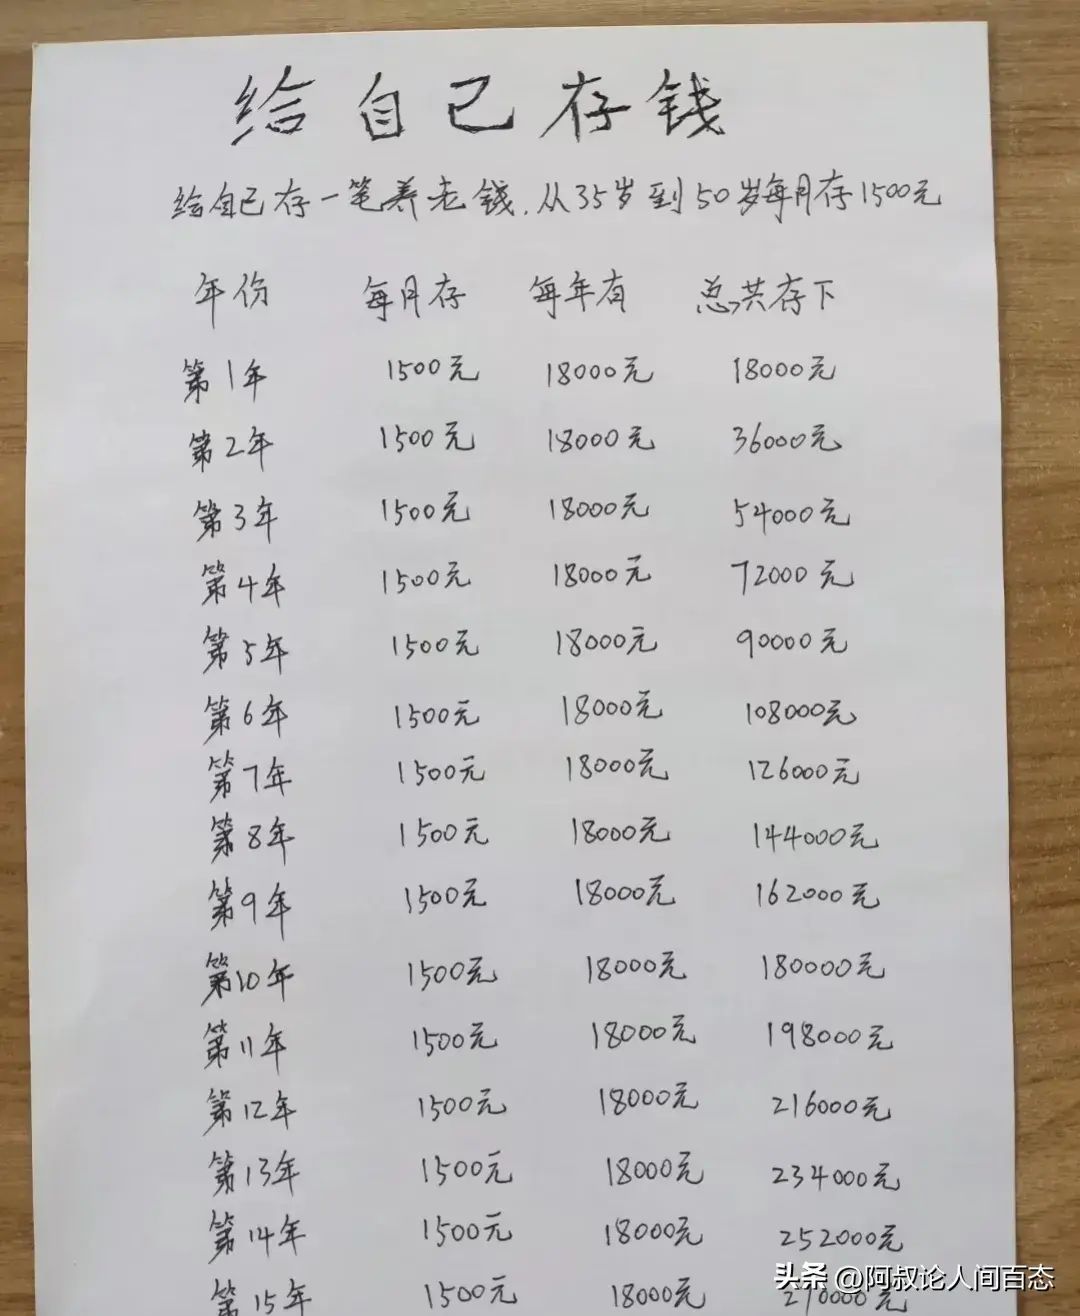 给自己存钱
给自己存一笔养老钱.从35岁到50岁每月存1500元
年份 每月存 每年有 总共存下
第1年 1500元 18000元 18000元
第2年 1500元 18000元 36000元
第3年 1500元 18000元 54000元
第4年 1500元 18000元 72000元
第5年 1500元 18000元 90000元
第6年 1500元 18000元 108000元
第7年 1500元 18000元 126000元
第8年 1500元 18000元 144000元
第9年 1500元 18000元 162000元
第10年 1500元 18000元 180000元
第11年 1500元 18000元 198000元
第12年 1500元 18000元 216000元
第13年 1500元 18000元 234000元
第14年 1500元 18000元 252000元
第15年 1500元 18000元 270000元
头条 @阿叔论人间百态